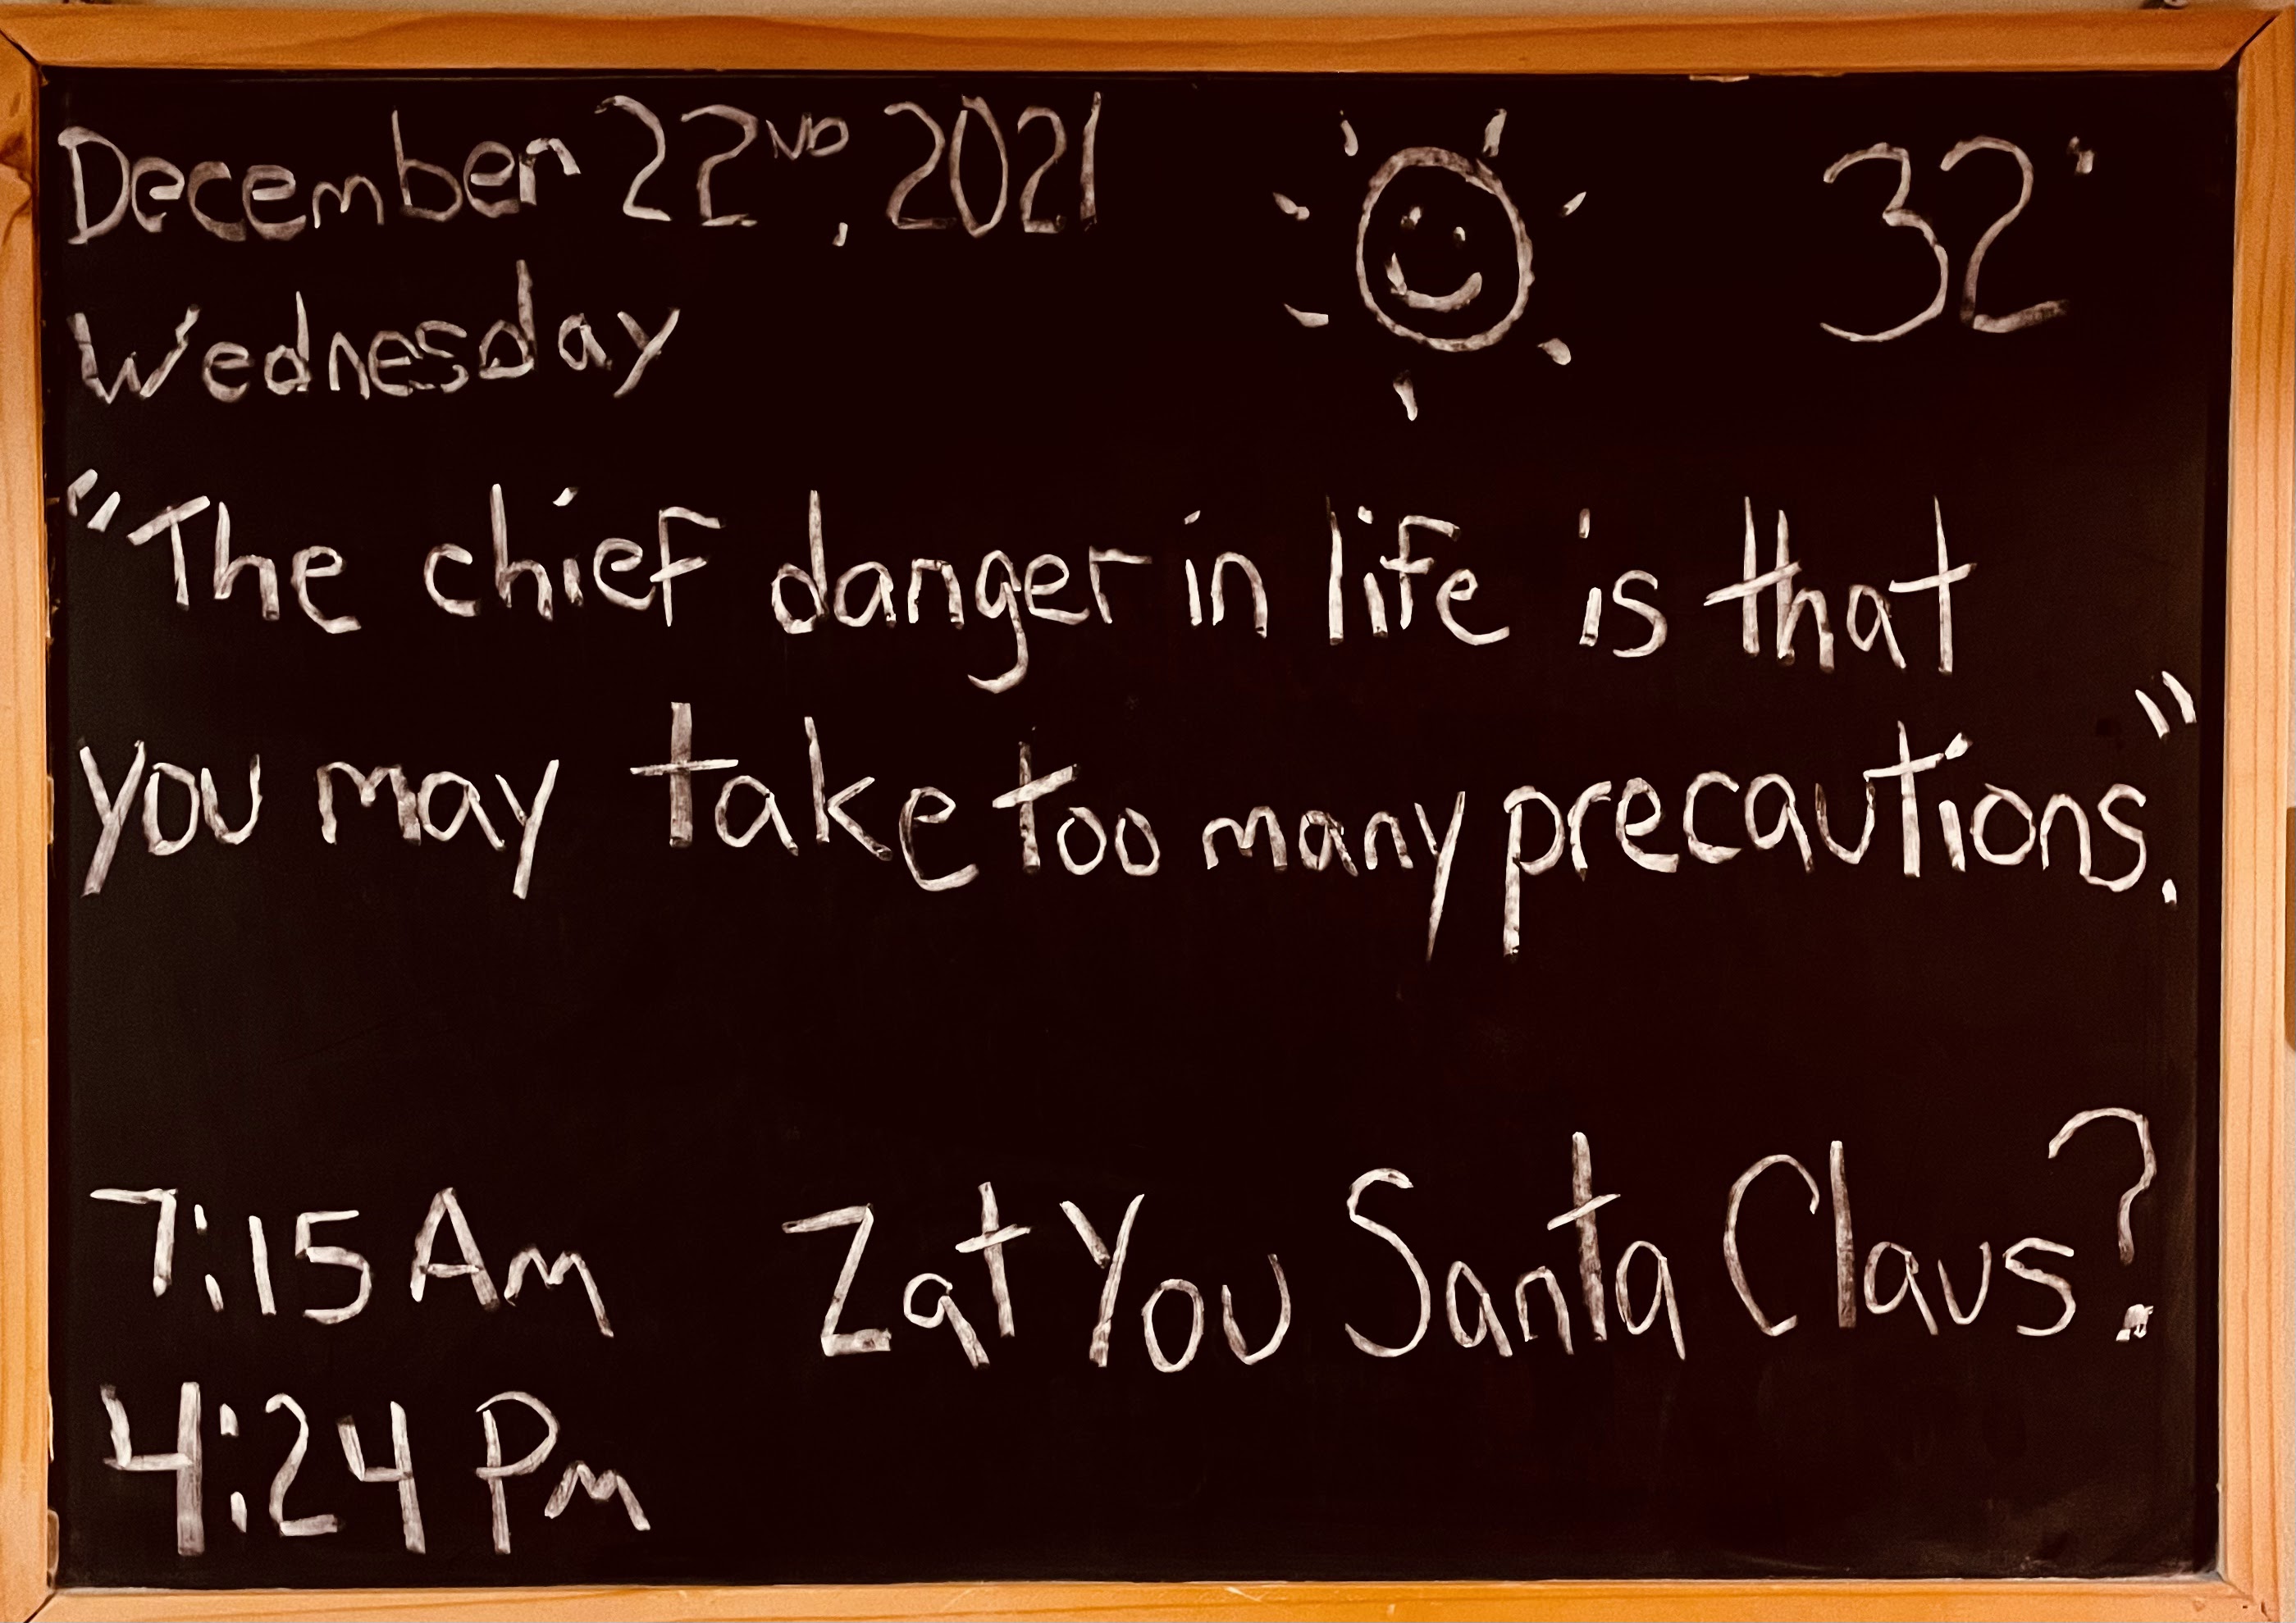 December 22ND, 2021
32°
Wednesday
"The chief danger in life is that
you may take too many precautions."
7:15 Am
Zat You Santa Claus?
4:24 Pm